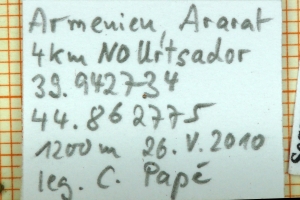 Armenien, Ararat
4km NO Urtsador
39.942734
44.862775
1200m 26.V.2010
leg. C. Papé